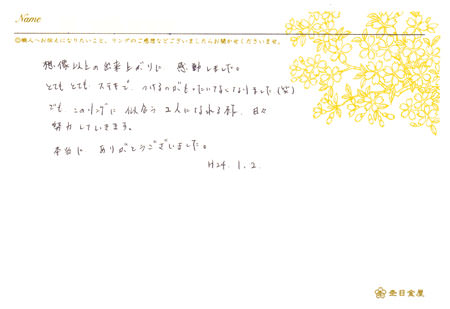 Name
◎職人へお伝えになりたいこと、リングのご感想などございましたらお聞かせくださいませ。
想像以上の出来上がりに 感動しました。
とてもとても ステキで、つけるのがもったいなくなりました(笑)
でも、このリングに 似合う 2人になれる様、日々
努力していきます。
本当に ありがとうございました。
H24. 1. 2.
杢目金屋